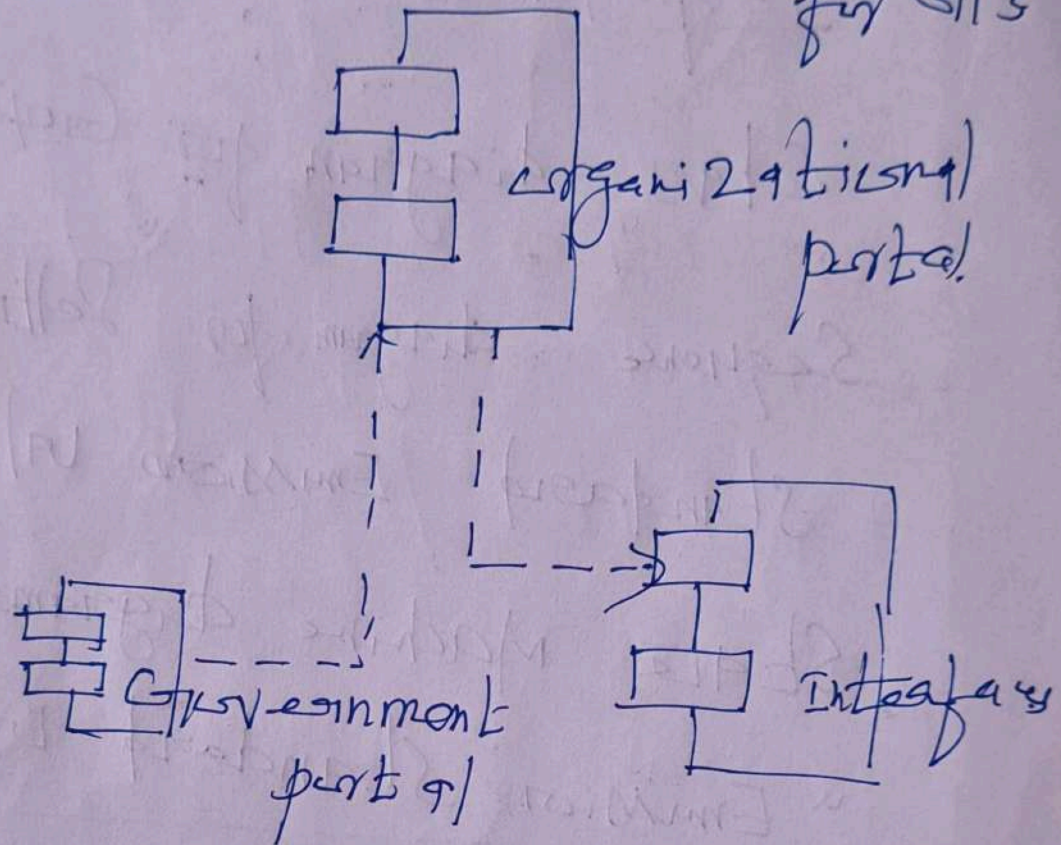 for
organizational
portal.
Government
portal
Interfaces